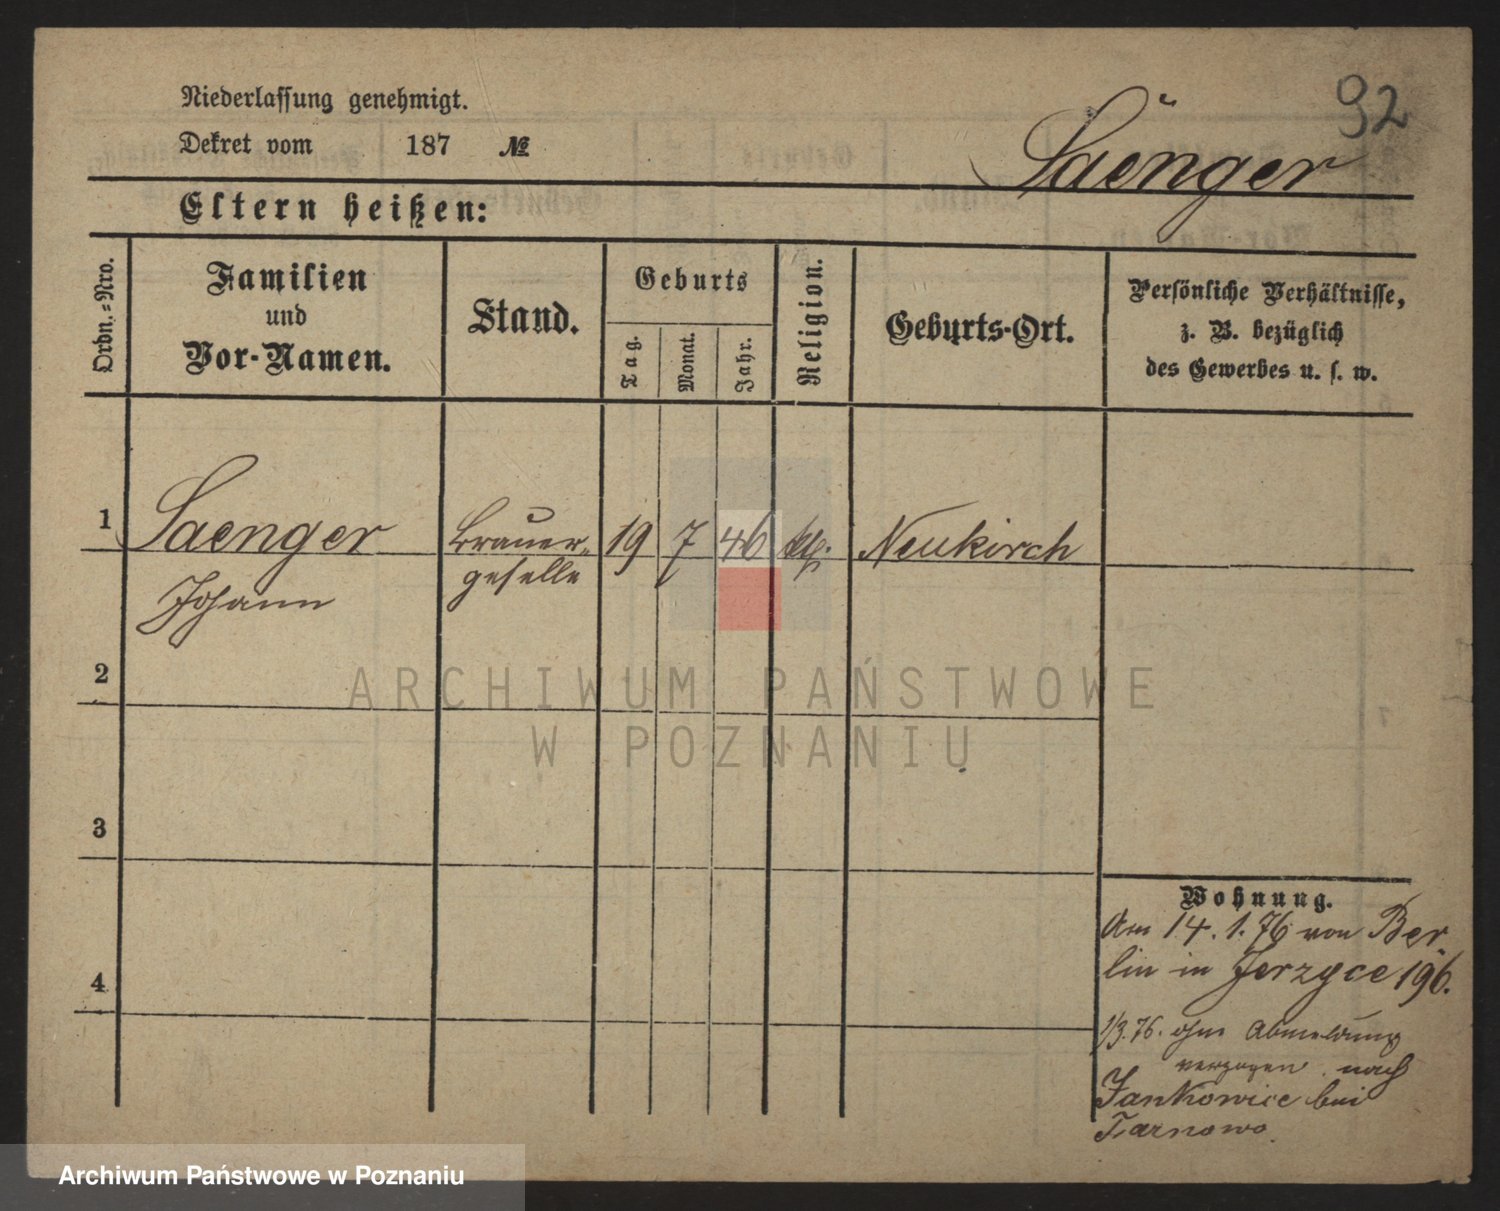 92
Niederlassung genehmigt.
Dekret vom 187 №
Saenger
Eltern heißen:
Ordn.=Nro.
Familien
und
Vor-Namen.
Stand.
Geburts
Tag.
Monat.
Jahr.
Religion.
Geburts-Ort.
Persönliche Verhältnisse,
z. B. bezüglich
des Gewerbes u. s. w.
1 Saenger Brauer- 19 7 46 Neukirch
Johann geselle
2
ARCHIWUM PAŃSTWOWE
W POZNANIU
3
Wohnung.
Am 14.1.76 von Ber
lin in Jerzyce 196.
4
1/3.76. ohne Abmeldung
verzogen nach
Jankowice bei
Tarnowo.
Archiwum Państwowe w Poznaniu